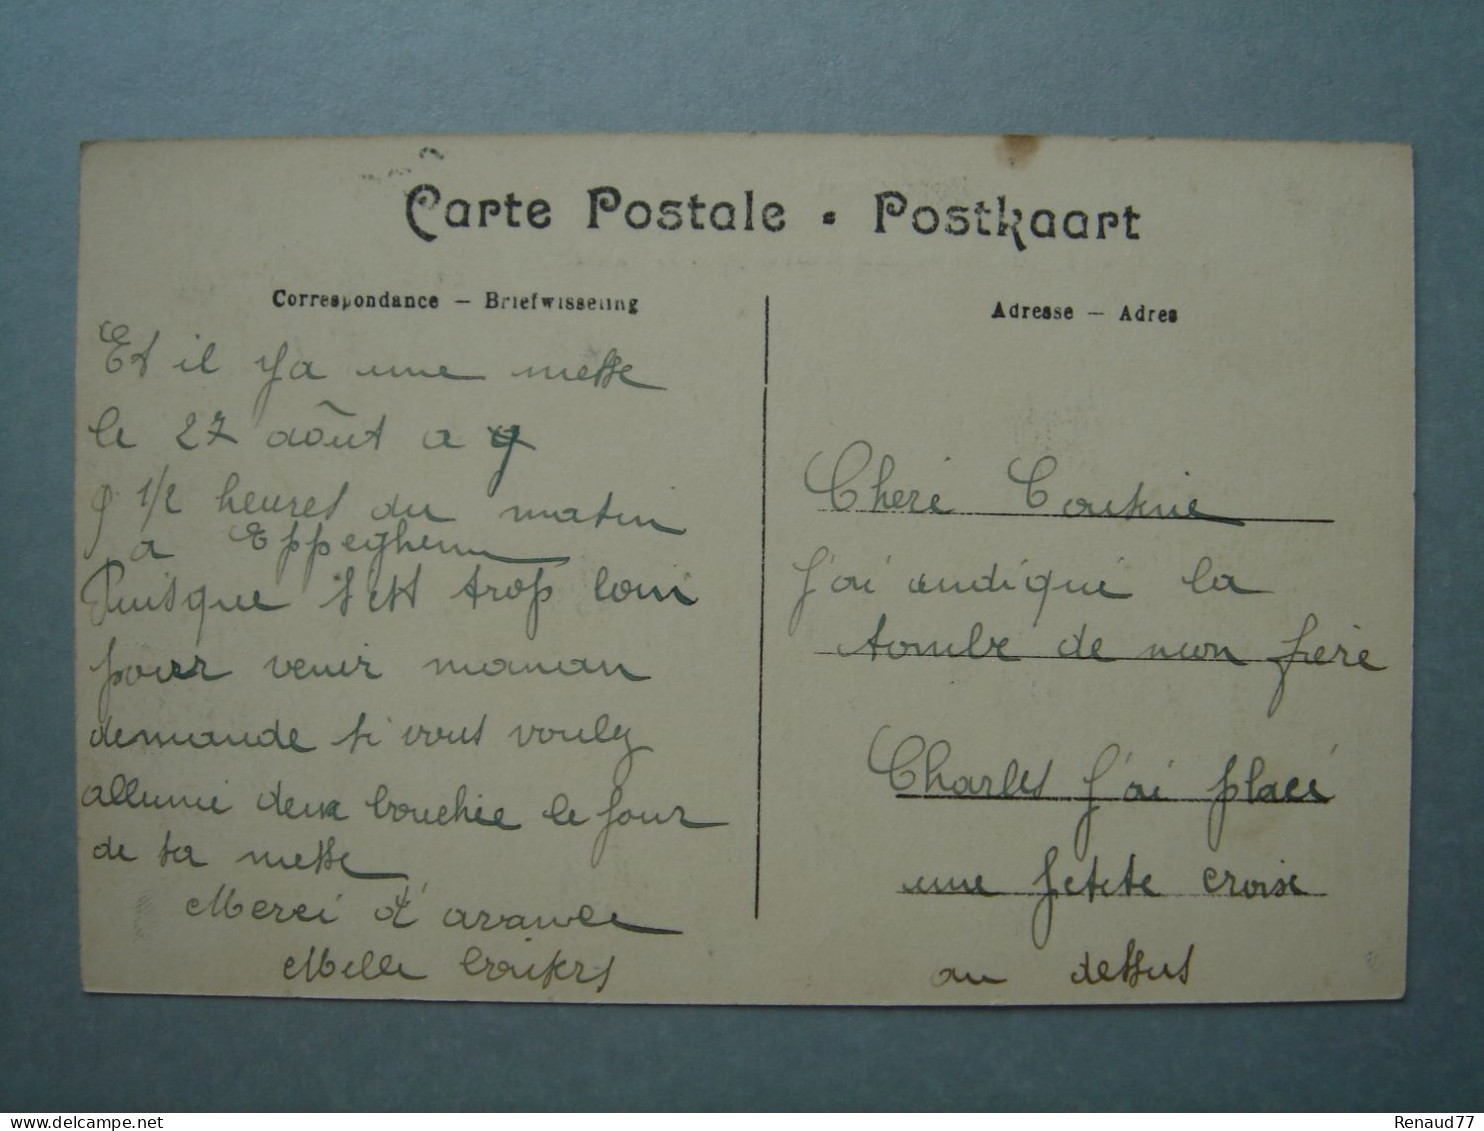 Carte Postale - Postkaart
Correspondance — Briefwisseling
Et il ya une messe
le 27 août a
9 1/2 heures du matin
a Eppeghem
Puisque s'est trop loin
pour venir maman
demande si vous vouley
allumé deux bouchie le jour
de sa messe
Merci d'avance
Melle
Adresse — Adres
Cheré Cousine
J'ai endiqué la
tombe de mon freré
Charles J'ai placé
une petite croise
au dessus
Renaud77